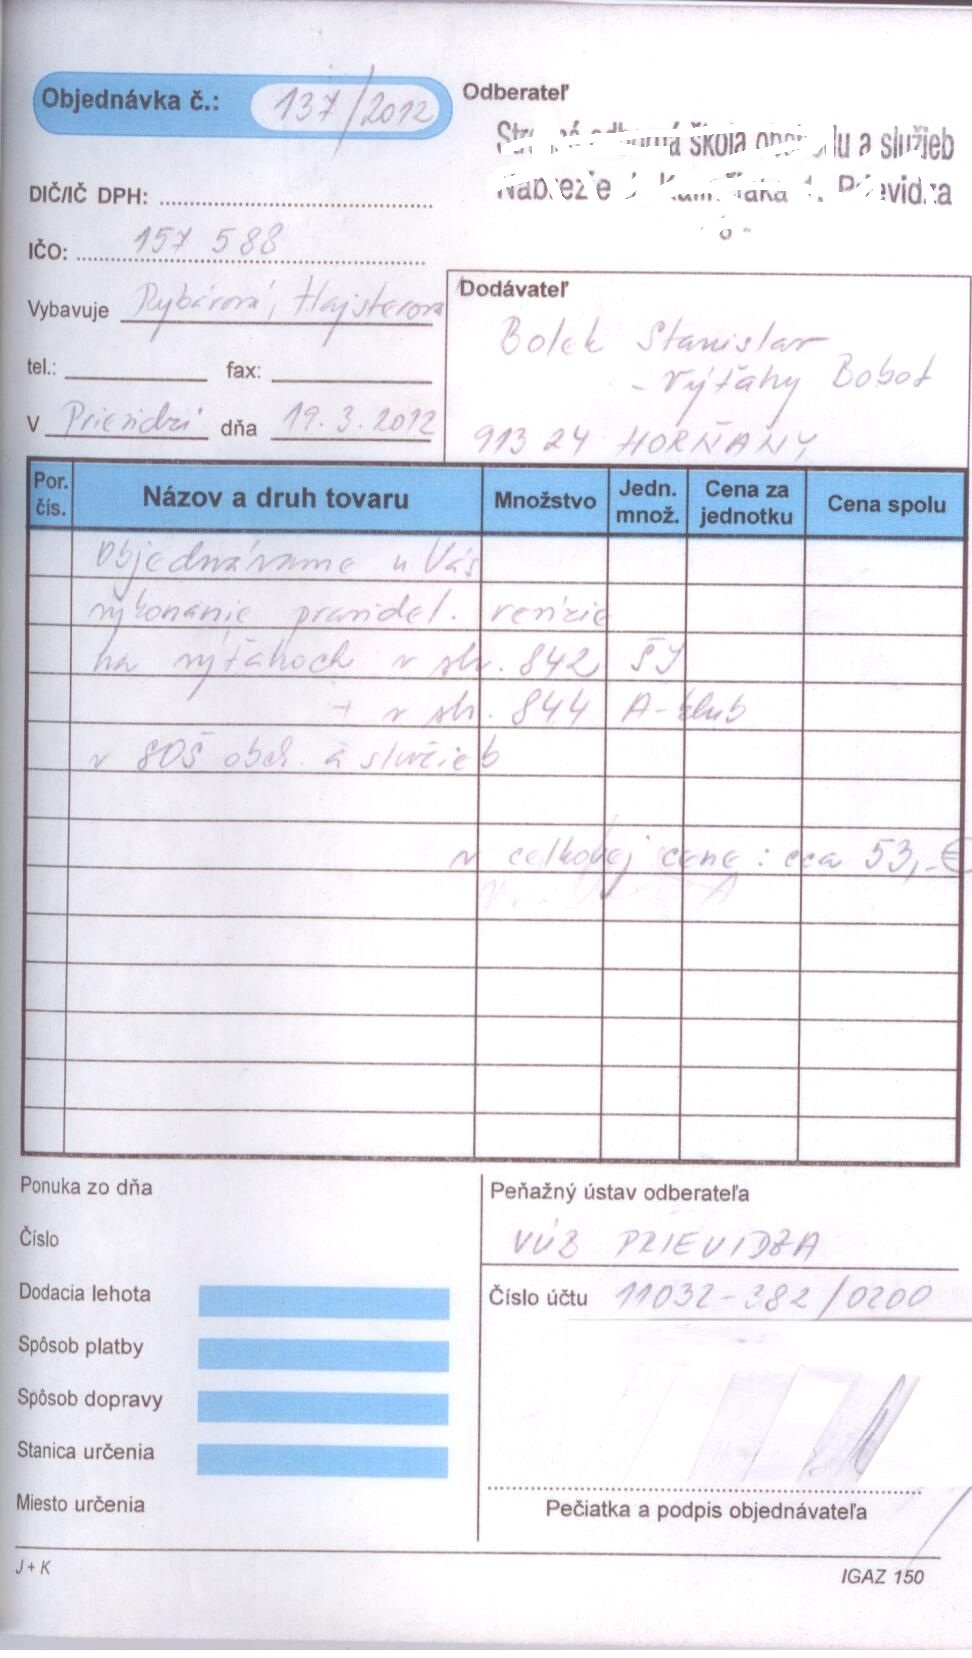 Objednávka č.: 137/2012
Odberateľ
škola a služieb
DIČ/IČ DPH:
IČO: 157 588
Vybavuje Rybárová, Hajsterová
tel.: fax:
V Prievidzi dňa 19.3.2012
Dodávateľ
Bolek Stanislav
- Výťahy Bobot
913 24 HORŇANY
Por. čís. Názov a druh tovaru Množstvo Jedn. množ. Cena za jednotku Cena spolu
Objednávame u Vás
vykonanie pravidel. revízie
na výťahoch v str. 842 ŠJ
+ v str. 844 A-klub
v SOŠ obch. a služieb
v celkovej cene : cca 53,-€
Ponuka zo dňa
Číslo
Dodacia lehota
Spôsob platby
Spôsob dopravy
Stanica určenia
Miesto určenia
Peňažný ústav odberateľa
VÚB PRIEVIDZA
Číslo účtu 11032-382/0200
Pečiatka a podpis objednávateľa
J + K
IGAZ 150